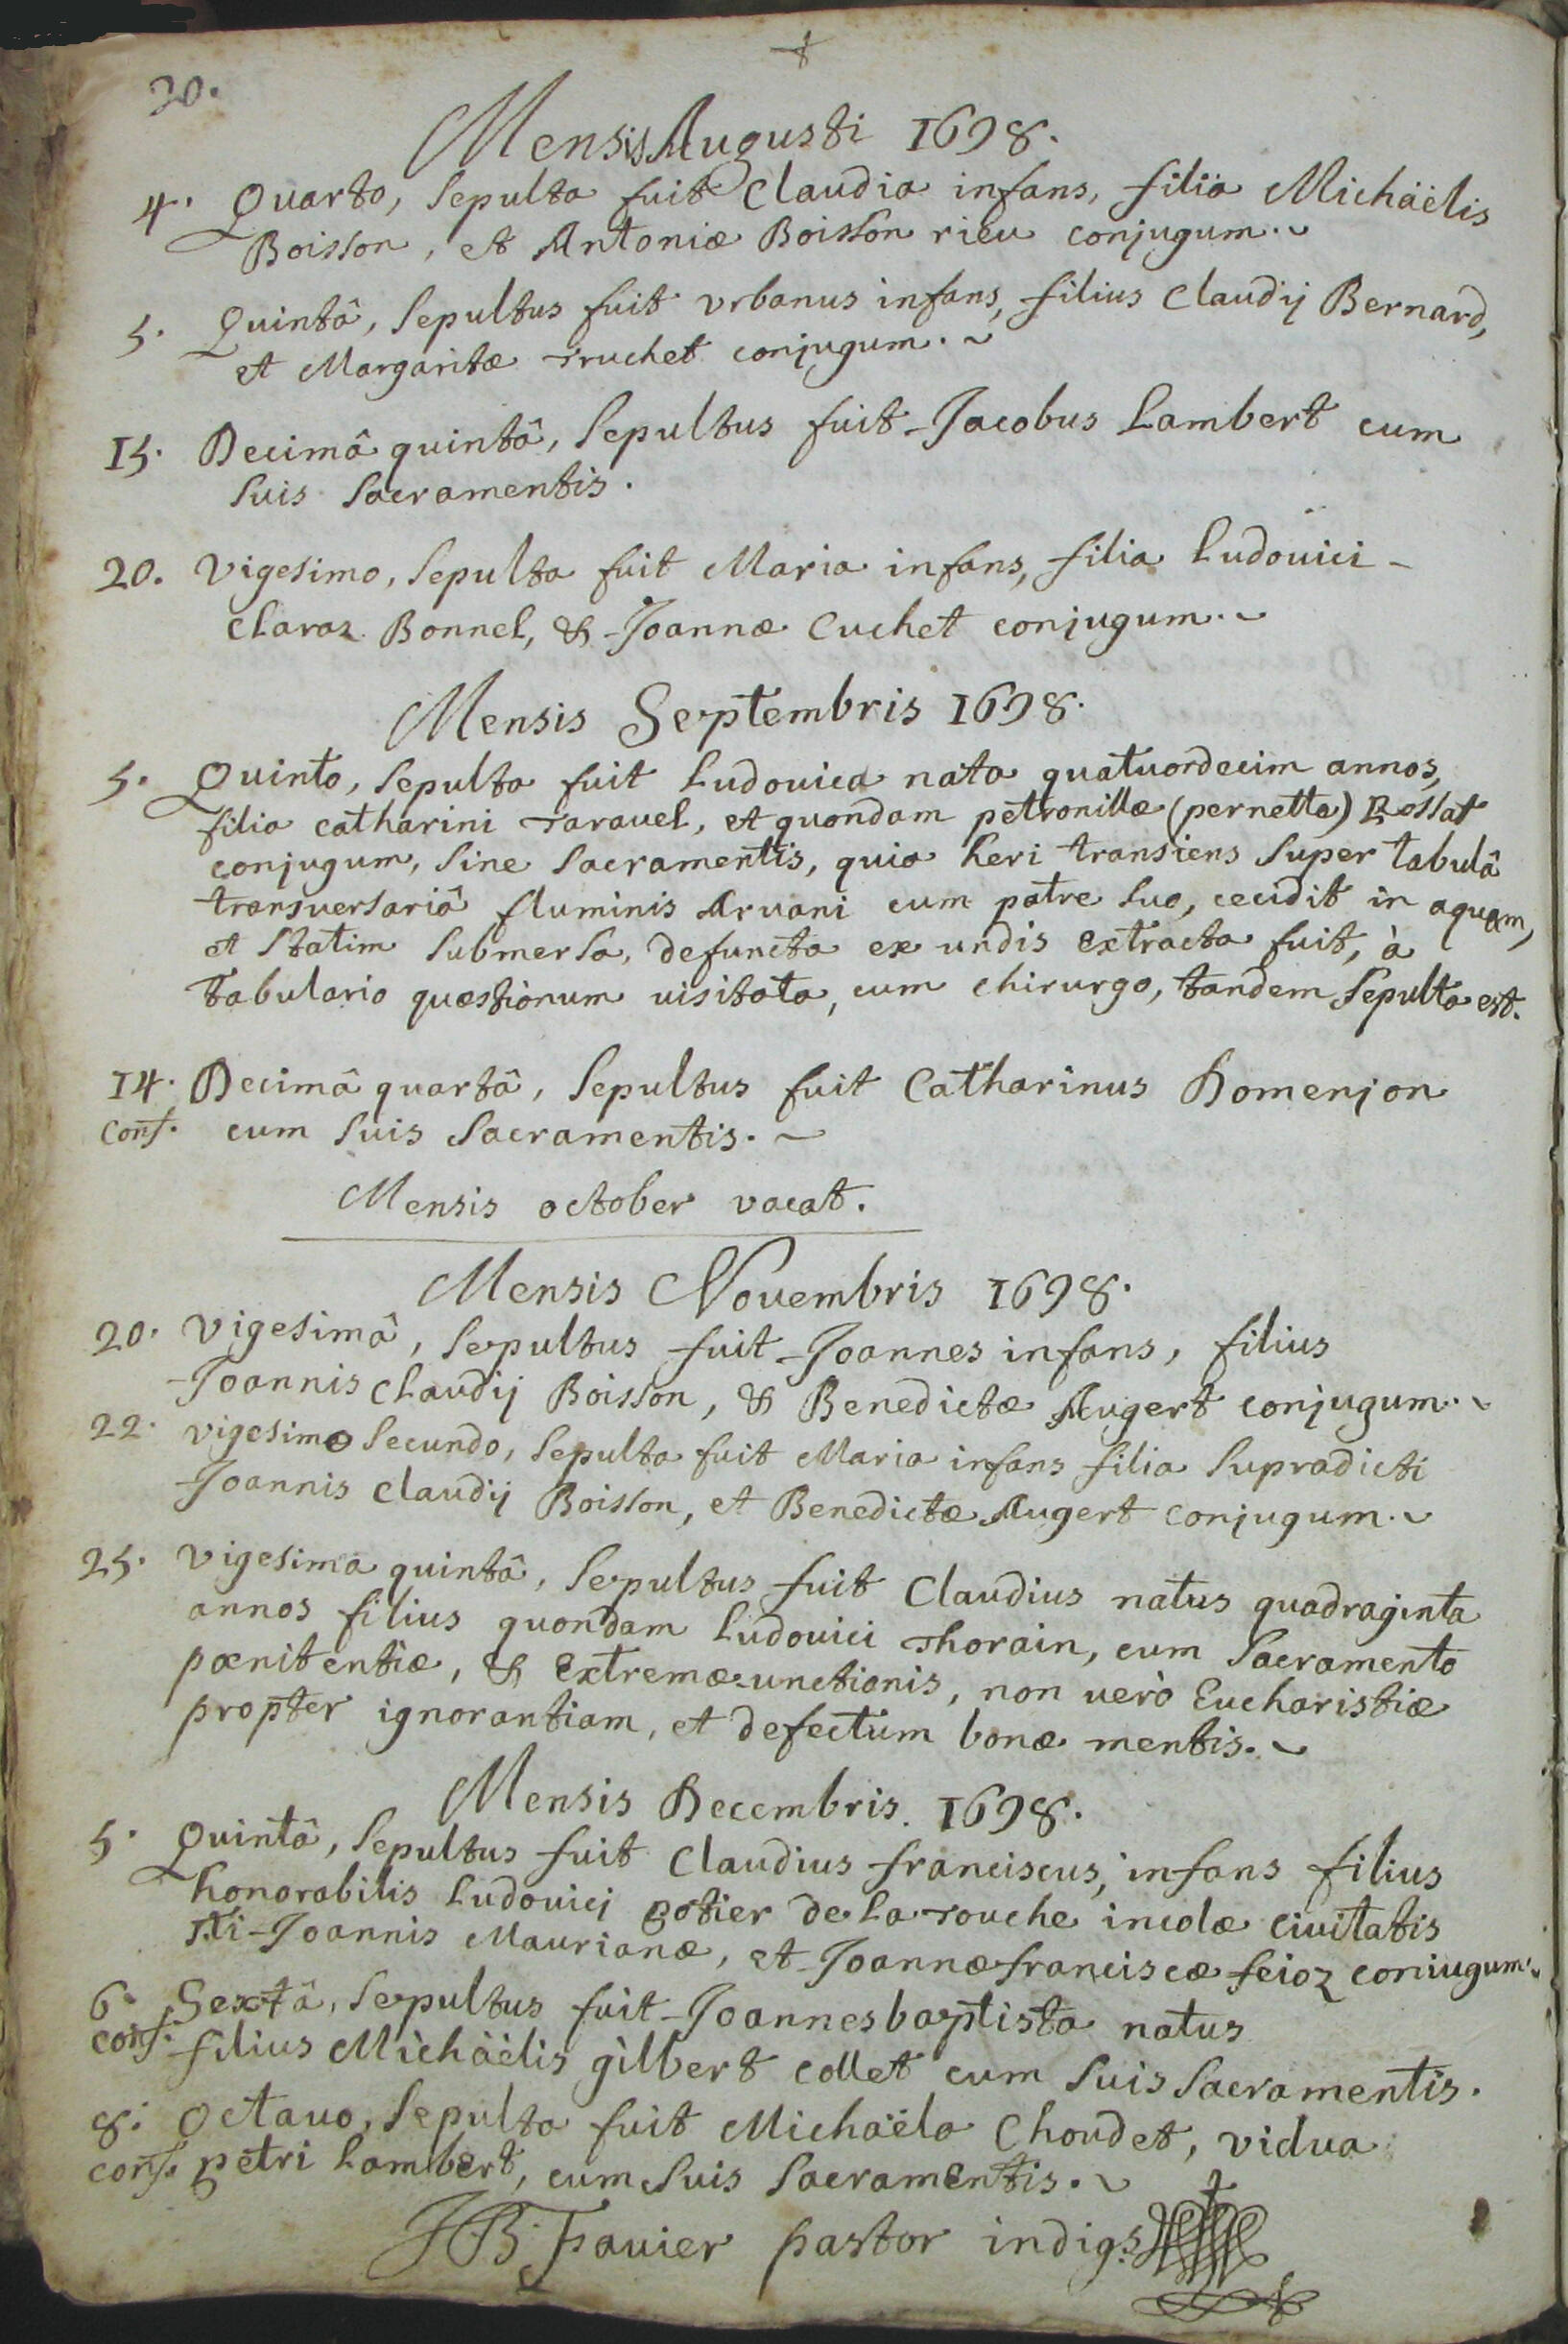 30.
Mensis Augusti 1698.
4. Quarto, sepulta fuit Claudia infans, filia Michäëlis
Boisson, et Antoniæ Boisson rieu conjugum.
5. Quintâ, sepultus fuit vrbanus infans, filius Claudij Bernard,
et Margaritæ Truchet conjugum.
15. Decimâ quintâ, sepultus fuit Jacobus Lambert cum
suis sacramentis.
20. Vigesimo, sepulta fuit Maria infans, filia Ludouici
Claraz Bonnel, & Joannæ Cuchet conjugum.
Mensis Septembris 1698.
5. Quinto, sepulta fuit Ludouica nata quatuordecim annos,
filia catharini Tarauel, et quondam petronillæ (pernetta) Rossat
conjugum, sine sacramentis, quia heri transiens super tabulâ
transuersariâ fluminis Aruani cum patre suo, cecidit in aquam,
et statim submersa, defuncta ex undis extracta fuit, à
tabulario quæstionum uisitata, cum chirurgo, tandem sepulta est.
14. Decimâ quartâ, sepultus fuit Catharinus Domenjon
conf. cum suis sacramentis.
Mensis october vacat.
Mensis Nouembris 1698.
20. Vigesimâ, sepultus fuit Joannes infans, filius
Joannis Claudij Boisson, & Benedictæ Augert conjugum.
22. vigesimo secundo, sepulta fuit Maria infans filia supradicti
Joannis Claudij Boisson, et Benedictæ Augert conjugum.
25. Vigesima quintâ, sepultus fuit Claudius natus quadraginta
annos filius quondam Ludouici Thorain, cum sacramento
pœnitentiæ, & Extremæ-unctionis, non uerò Eucharistiæ
propter ignorantiam, et defectum bonæ mentis.
Mensis Decembris. 1698.
5. Quintâ, sepultus fuit Claudius franciscus, infans filius
honorabilis Ludouici gotier de la Touche incolæ ciuitatis
sti Joannis Maurianæ, et Joannæ franciscæ feioz coniugum.
6. Sextâ, sepultus fuit Joannes baptista natus
conf. filius Michäëlis gilbert collet cum suis sacramentis.
8. Octauo, sepulta fuit Michaëla Choudet, vidua
conf. petri Lambert, cum suis sacramentis.
JB: Fauier pastor indigs